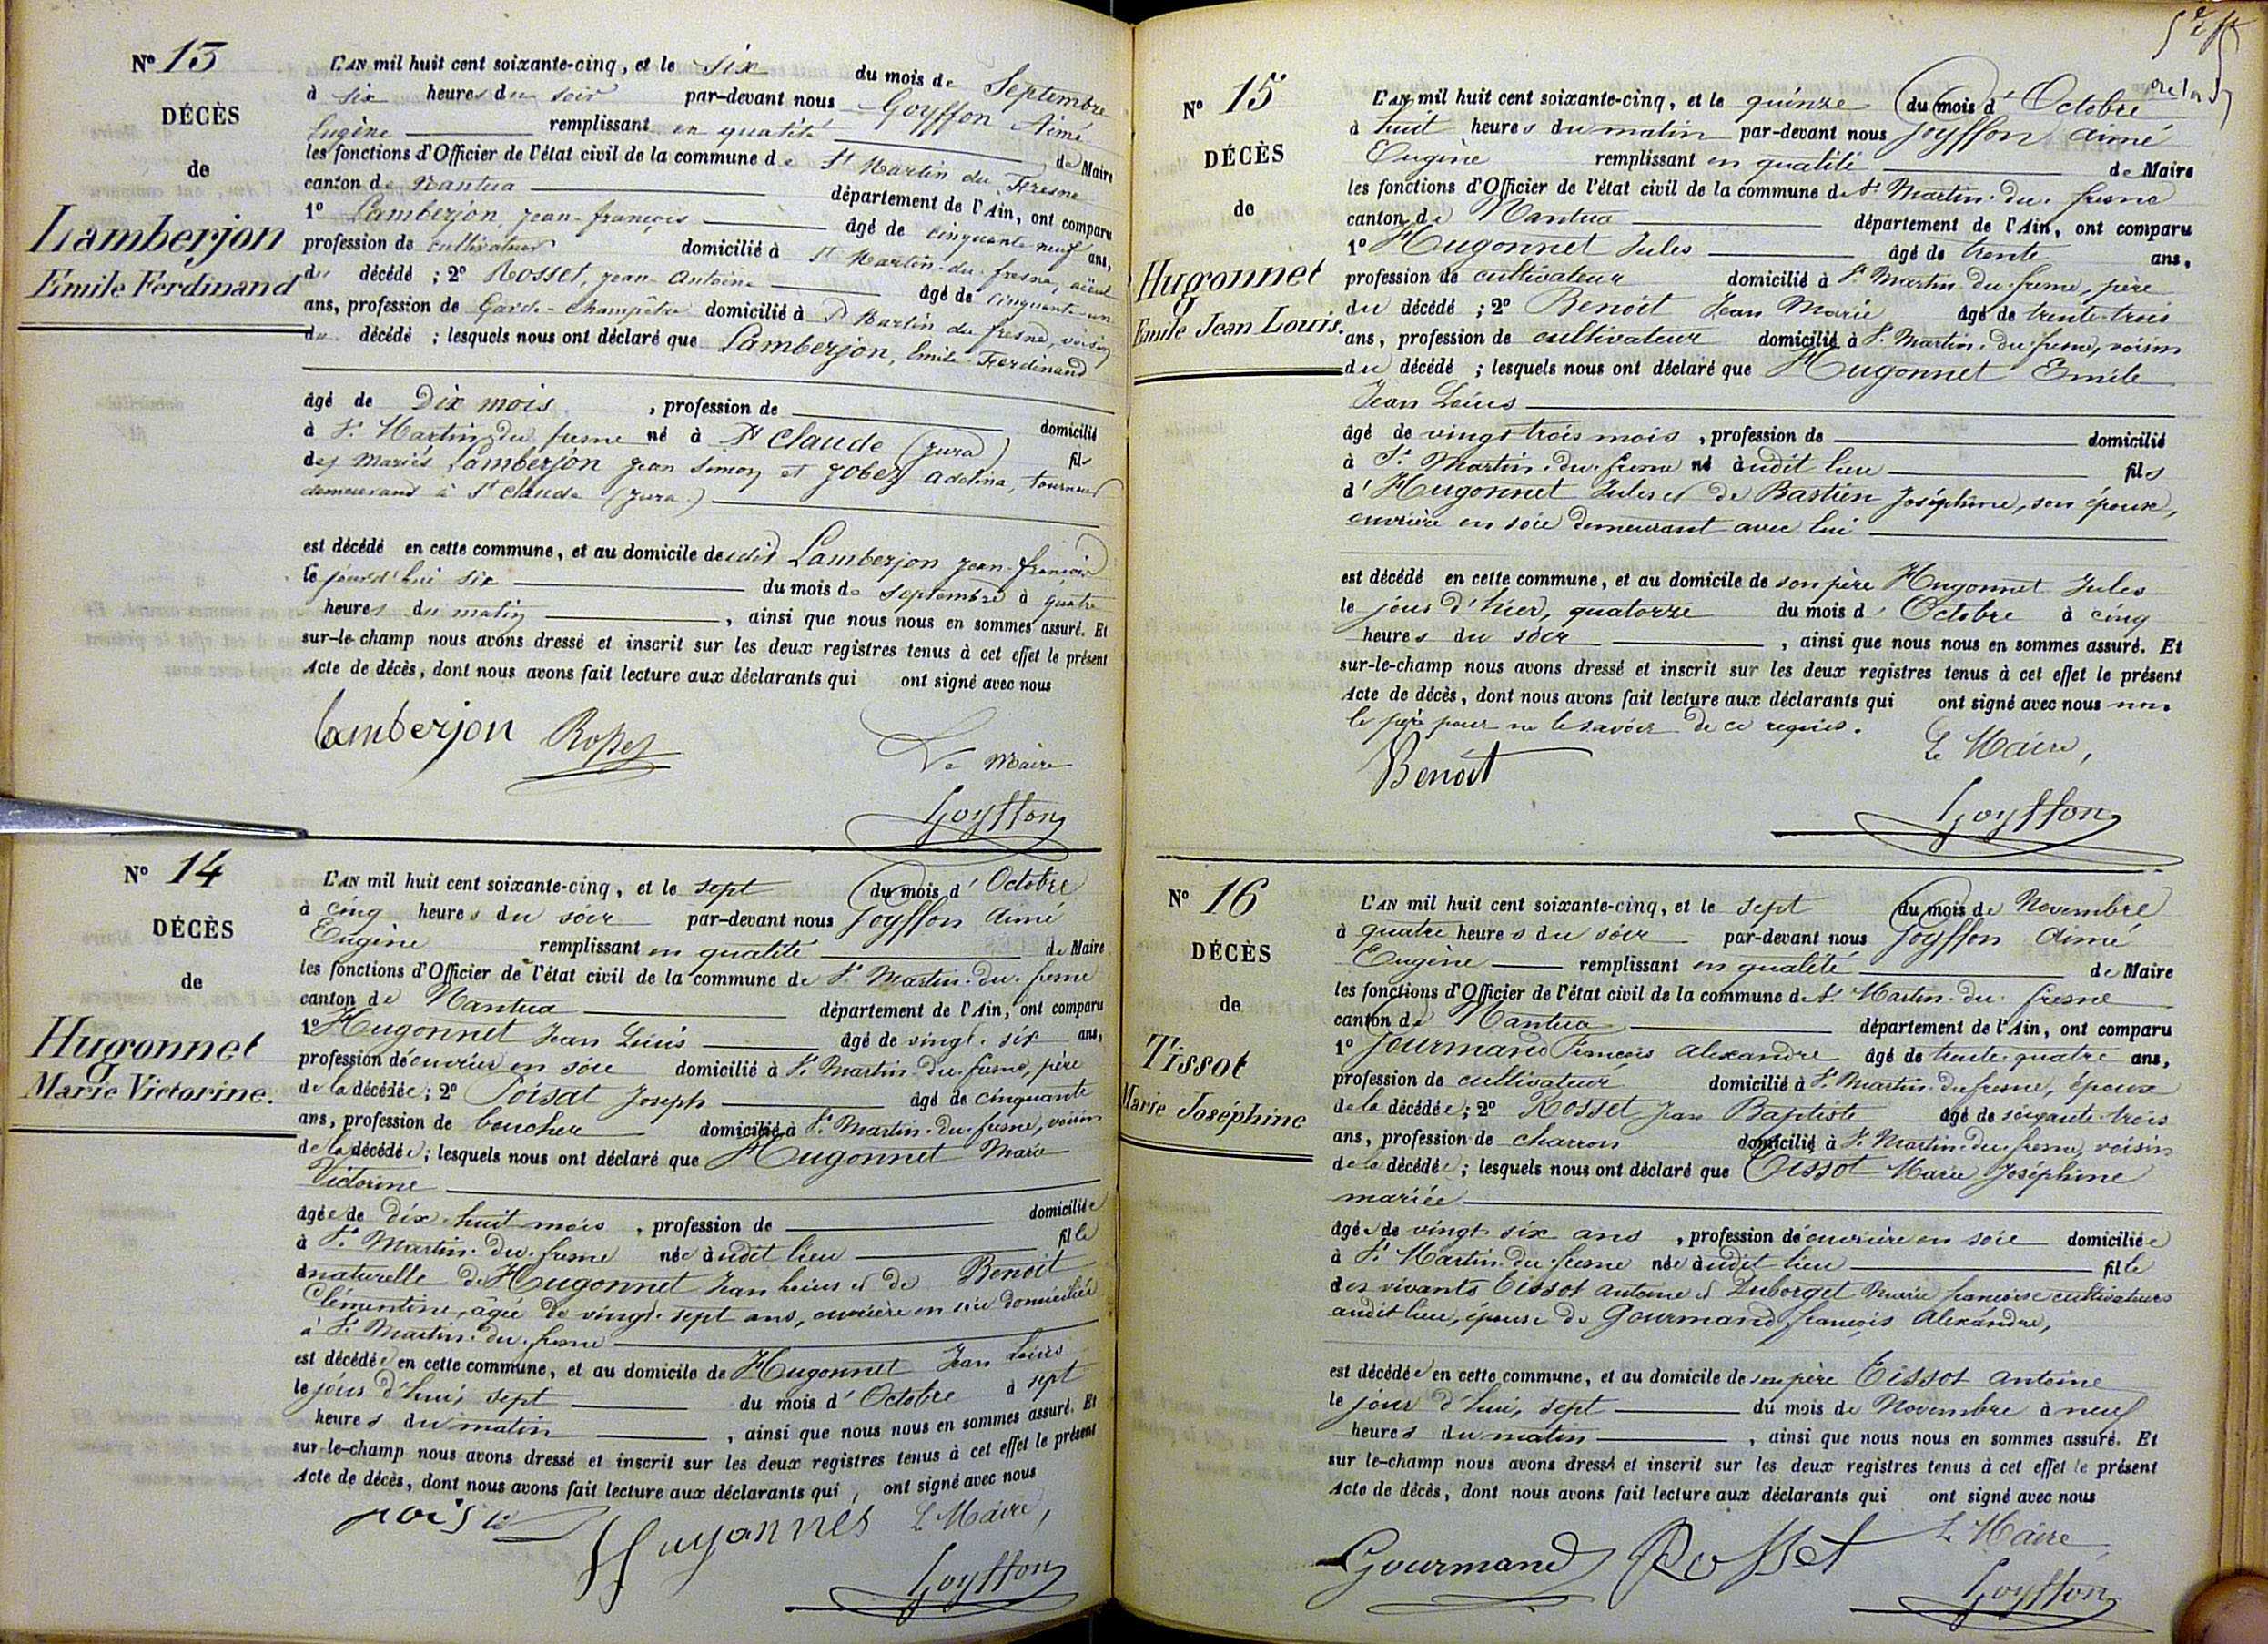 Nº 13
DÉCÈS
de
Lamberjon
Emile Ferdinand
L'AN mil huit cent soixante-cinq, et le six du mois de Septembre
à six heures du soir par-devant nous Goyffon Aimé
Eugène remplissant en qualité de Maire
les fonctions d'Officier de l'état civil de la commune de St Martin du Fresne
canton de Nantua département de l'Ain, ont comparu
1º Lamberjon, Jean-françois âgé de cinquante neuf ans,
profession de cultivateur domicilié à St Martin-du-fresne, aïeul
du décédé ; 2º Rosset, Jean-Antoine âgé de cinquante-un
ans, profession de Garde-Champêtre domicilié à St Martin du fresne, voisin
du décédé ; lesquels nous ont déclaré que Lamberjon, Emile-Ferdinand
âgé de Dix mois, profession de domicilié
à St Martin du fresne né à St Claude (Jura) fils
des mariés Lamberjon Jean Simon et Gobez Adelina, tourneur
demeurand à St Claude (Jura)
est décédé en cette commune, et au domicile dudit Lamberjon Jean-françois
le jourd'hui six du mois de septembre à quatre
heures du matin, ainsi que nous nous en sommes assuré. Et
sur-le-champ nous avons dressé et inscrit sur les deux registres tenus à cet effet le présent
Acte de décès, dont nous avons fait lecture aux déclarants qui ont signé avec nous
Lamberjon Rosset Le Maire
Goyffon
Nº 14
DÉCÈS
de
Hugonnet
Marie Victorine.
L'AN mil huit cent soixante-cinq, et le sept du mois d'Octobre
à cinq heures du soir par-devant nous Goyffon Aimé
Eugène remplissant en qualité de Maire
les fonctions d'Officier de l'état civil de la commune de St Martin-du-fresne
canton de Nantua département de l'Ain, ont comparu
1º Hugonnet Jean Louis âgé de vingt-six ans,
profession de ouvrier en soie domicilié à St Martin-du-fresne, père
de la décédée ; 2º Poisat Joseph âgé de cinquante
ans, profession de boucher domicilié à St Martin-du-fresne, voisin
de la décédée ; lesquels nous ont déclaré que Hugonnet Marie
Victorine
âgée de dix-huit mois, profession de domiciliée
à St Martin-du-fresne née audit lieu fille
naturelle de Hugonnet Jean Louis et de Benoit
Clémentine, âgée de vingt-sept ans, ouvrière en soie domiciliés
à St Martin-du-fresne
est décédée en cette commune, et au domicile de Hugonnet Jean Louis
le jour d'hui, sept du mois d'Octobre à sept
heures du matin, ainsi que nous nous en sommes assuré. Et
sur-le-champ nous avons dressé et inscrit sur les deux registres tenus à cet effet le présent
Acte de décès, dont nous avons fait lecture aux déclarants qui ont signé avec nous
Hugonnet Le Maire,
Goyffon
Nº 15
DÉCÈS
de
Hugonnet
Emile Jean Louis.
L'AN mil huit cent soixante-cinq, et le quinze du mois d'Octobre
à huit heures du matin par-devant nous Goyffon Aimé
Eugène remplissant en qualité de Maire
les fonctions d'Officier de l'état civil de la commune de St Martin-du-fresne
canton de Nantua département de l'Ain, ont comparu
1º Hugonnet Jules âgé de trente ans,
profession de cultivateur domicilié à St Martin-du-fresne, père
du décédé ; 2º Benoit Jean Marie âgé de trente-trois
ans, profession de cultivateur domicilié à St Martin-du-fresne, voisin
du décédé ; lesquels nous ont déclaré que Hugonnet Emile
Jean Louis
âgé de vingt trois mois, profession de domicilié
à St Martin-du-fresne né audit lieu fils
d'Hugonnet Jules et de Bastien Joséphine, son épouse,
ouvrière en soie demeurant avec lui
est décédé en cette commune, et au domicile de son père Hugonnet Jules
le jour d'hier, quatorze du mois d'Octobre à cinq
heures du soir, ainsi que nous nous en sommes assuré. Et
sur-le-champ nous avons dressé et inscrit sur les deux registres tenus à cet effet le présent
Acte de décès, dont nous avons fait lecture aux déclarants qui ont signé avec nous non
le père pour ne le savoir de ce requis.
Benoit Le Maire,
Goyffon
Nº 16
DÉCÈS
de
Tissot
Marie Joséphine
L'AN mil huit cent soixante-cinq, et le sept du mois de Novembre
à quatre heures du soir par-devant nous Goyffon Aimé
Eugène remplissant en qualité de Maire
les fonctions d'Officier de l'état civil de la commune de St Martin-du-fresne
canton de Nantua département de l'Ain, ont comparu
1º Gourmand François Alexandre âgé de trente-quatre ans,
profession de cultivateur domicilié à St Martin-du-fresne, époux
de la décédée ; 2º Rosset Jean Baptiste âgé de soixante-trois
ans, profession de charron domicilié à St Martin-du-fresne, voisin
de la décédée ; lesquels nous ont déclaré que Tissot Marie Joséphine
mariée
âgée de vingt-six ans, profession de ouvrière en soie domiciliée
à St Martin-du-fresne née audit lieu fille
des vivants Tissot Antoine et Duborget Marie françoise cultivateurs
audit lieu, épouse de Gourmand françois Alexandre,
est décédée en cette commune, et au domicile de son père Tissot Antoine
le jour d'hui, sept du mois de Novembre à neuf
heures du matin, ainsi que nous nous en sommes assuré. Et
sur le-champ nous avons dressé et inscrit sur les deux registres tenus à cet effet le présent
Acte de décès, dont nous avons fait lecture aux déclarants qui ont signé avec nous
Gourmand Rosset Le Maire
Goyffon